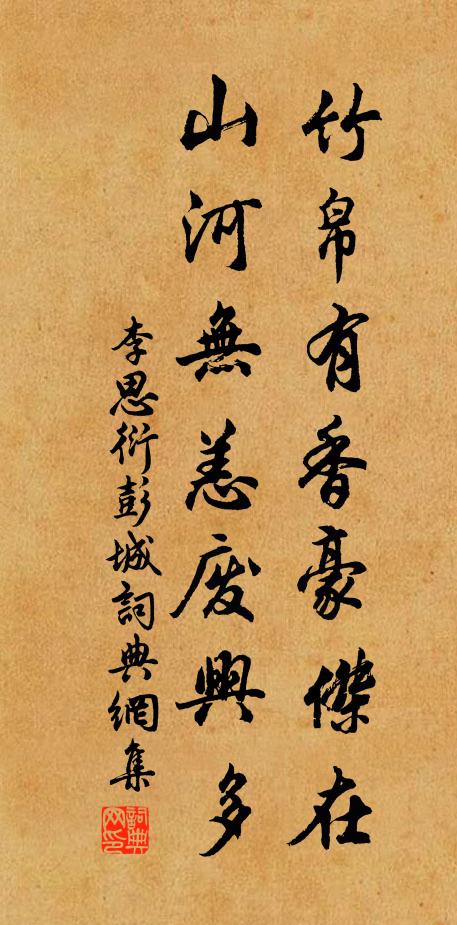 竹帛有香豪傑在
山河無恙廢興多
李思衍彭城詞典網集
詞典网印